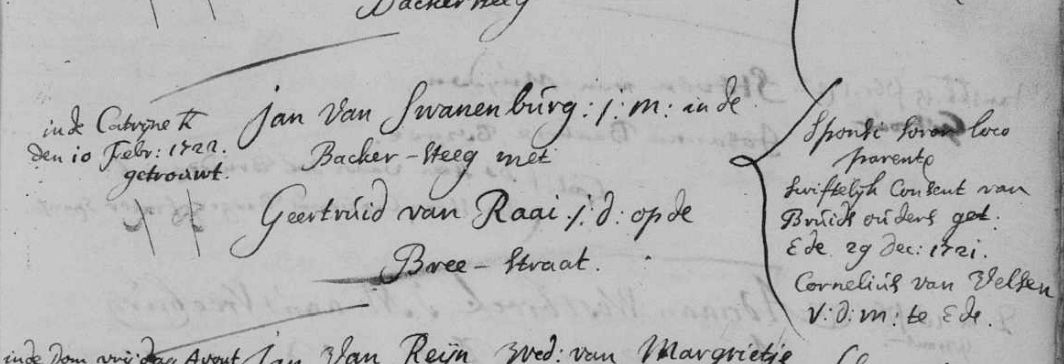 Backersteeg
in de Catrijne K
den 10 Febr: 1722.
getrouwt.
Jan Van Swanenburg: j: m: in de
Backer-steeg met
Geertruid van Raai. j: d: op de
Bree-straat.
Sponsi soror loco
parent
Swiftelijk Consent van
Bruids ouders get.
Ede 29 dec: 1721.
Cornelius van Velsen
V: d: m: te Ede.
in de Dom vrijdag Avont
Jan Van Reijn Wed: van Margrietje